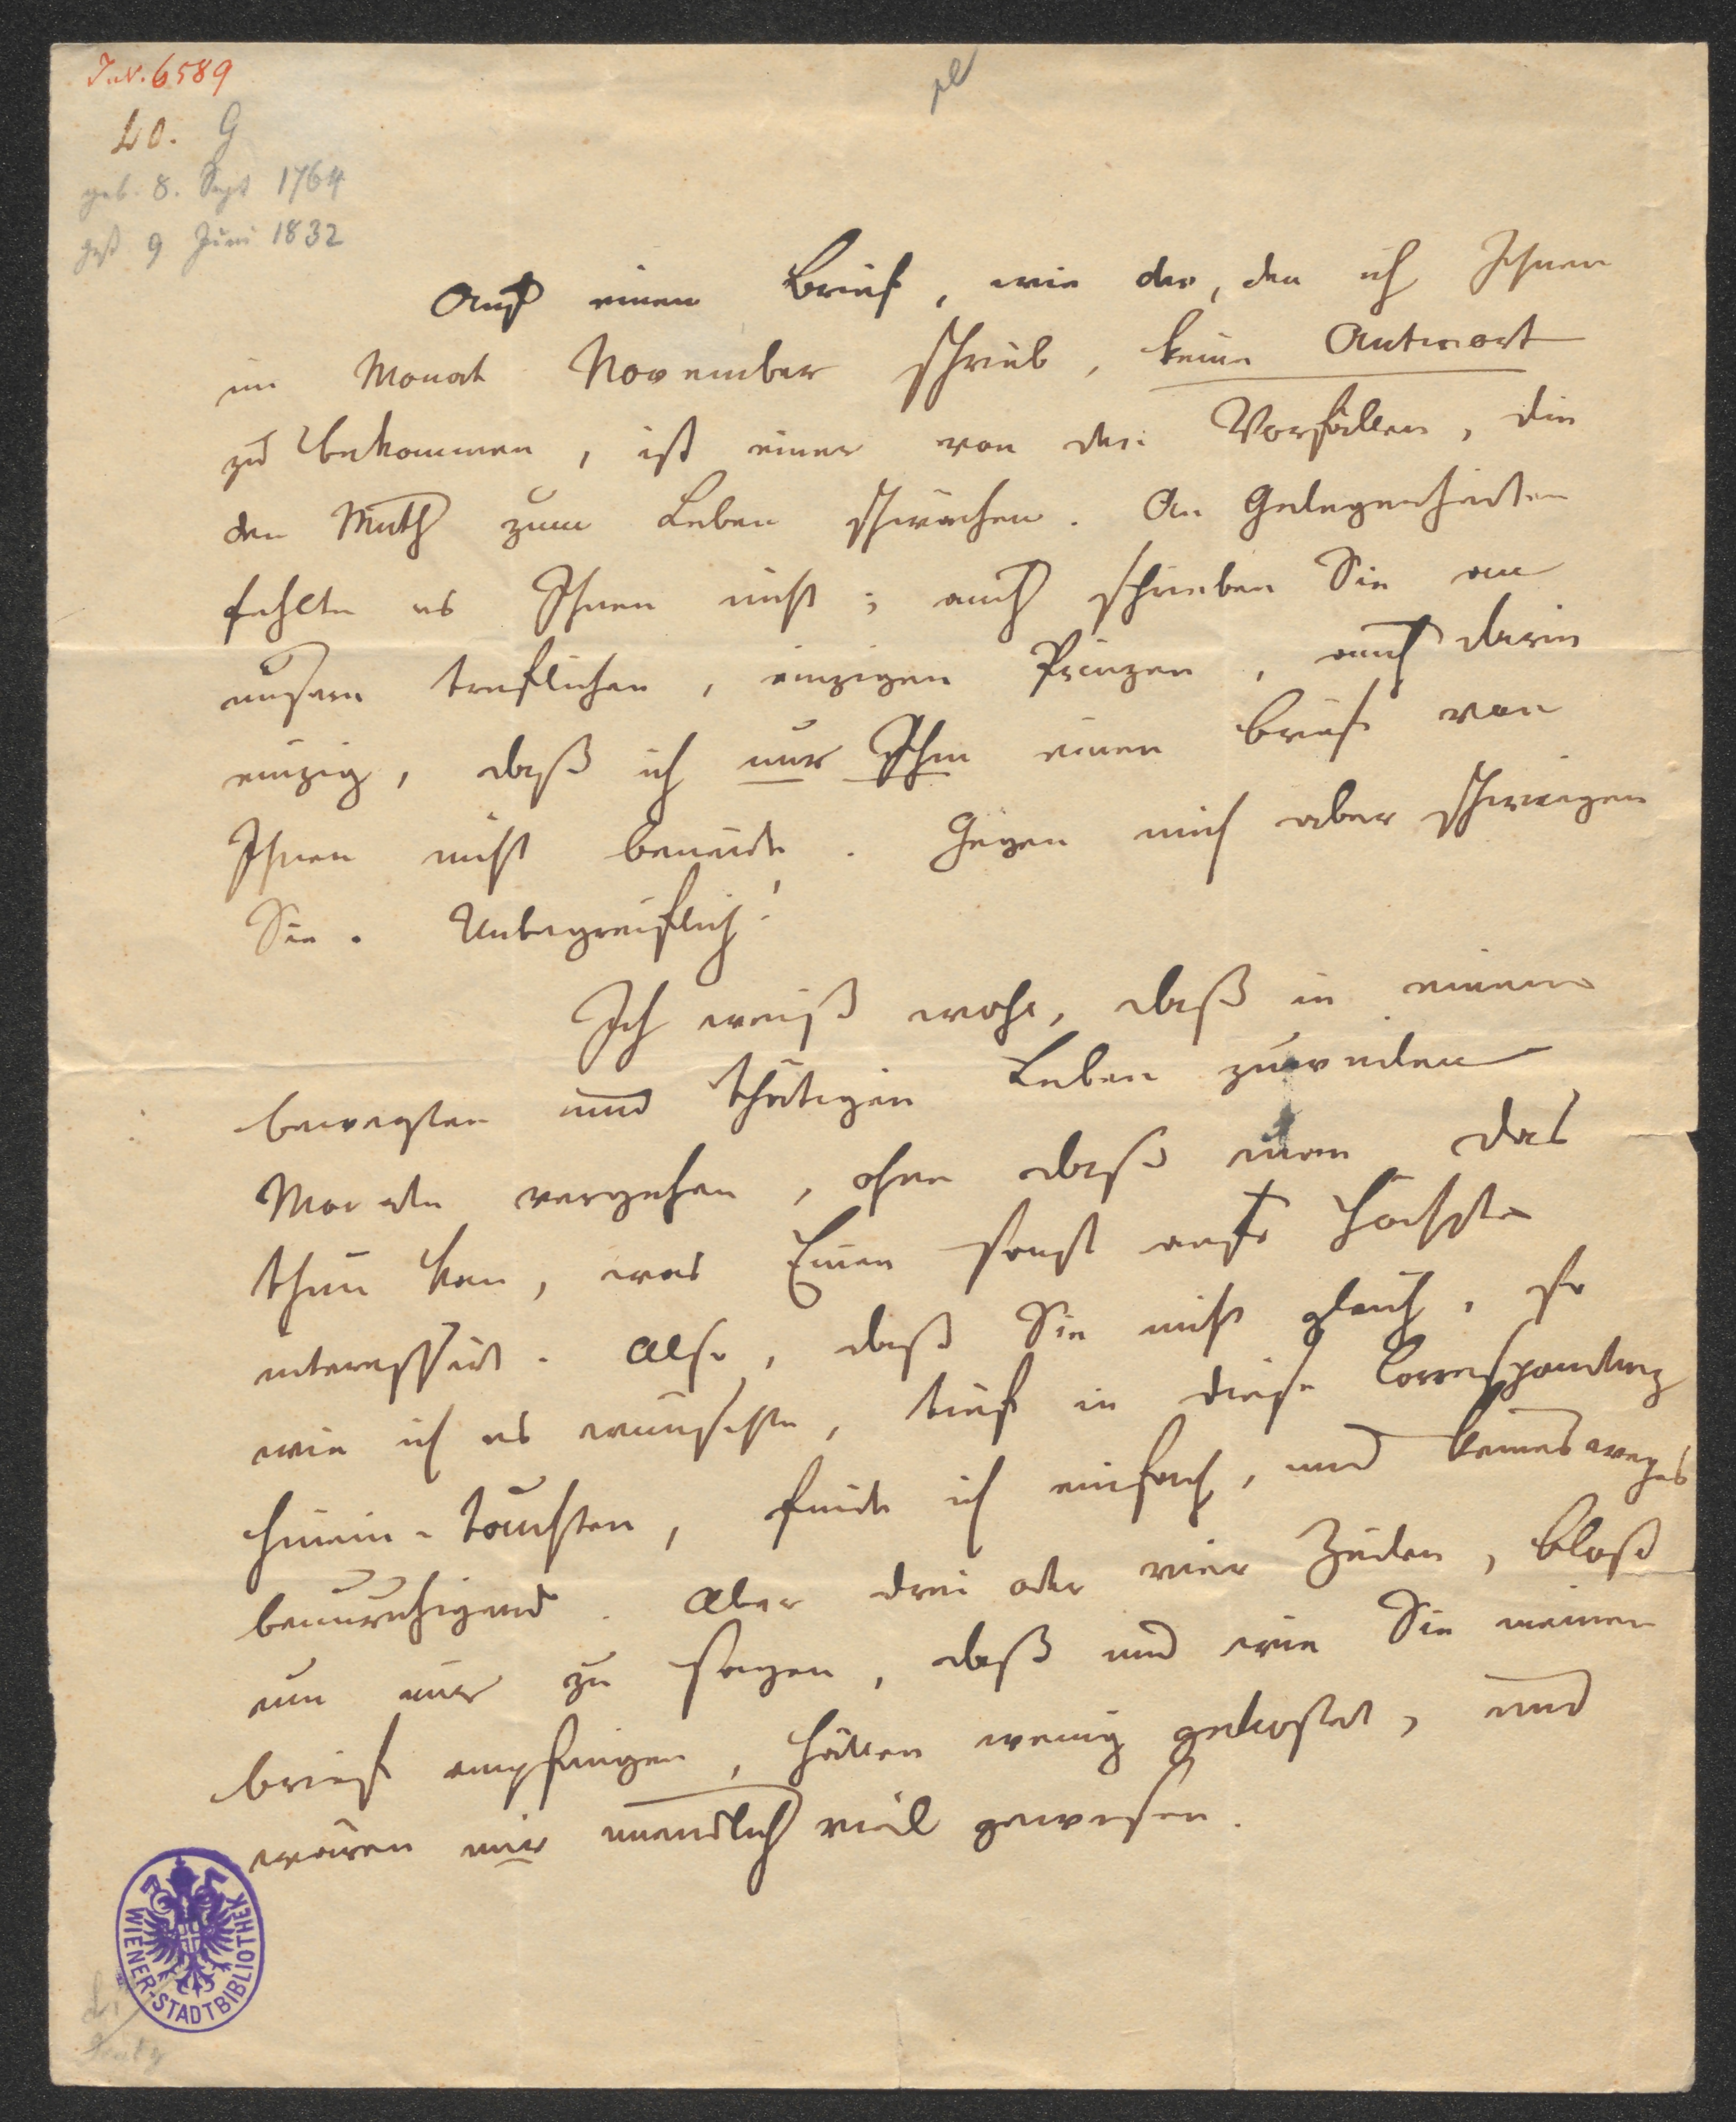 J.N. 6589
LO. G
geb. 8. Sept 1764
gest 9 Juni 1832
Auf einen Brief, wie der, den ich Ihnen
im Monat November schrieb, keine Antwort
zu bekommen, ist einer von den Vorfällen, die
den Muth zum Leben schwächen. An Gelegenheiten
fehlte es Ihnen nicht; auch schrieben Sie an
unsern treflichen, einzigen Prinzen, auch darin
einzig, daß ich nur Ihm einen Brief von
Ihnen nicht beneide. Gegen mich aber schwiegen
Sie. Unbegreiflich!
Ich weiß wohl, daß in einem
bewegten und thätigen Leben zuweilen
Monate vergehen, ohne daß man das
thun kan, was Einen sonst aufs höchste
interessirt. Also, daß Sie nicht gleich, so
wie ich es wünschte, tief in diese Correspondenz
hinein-tauchten, finde ich einfach, und keinesweges
beunruhigend. Aber drei oder vier Zeilen, bloß
um mir zu sagen, daß und wie Sie meinen
Brief empfingen, hätten wenig gekostet, und
wären mir unendlich viel gewesen.
WIENER-STADTBIBLIOTHEK
Gentz